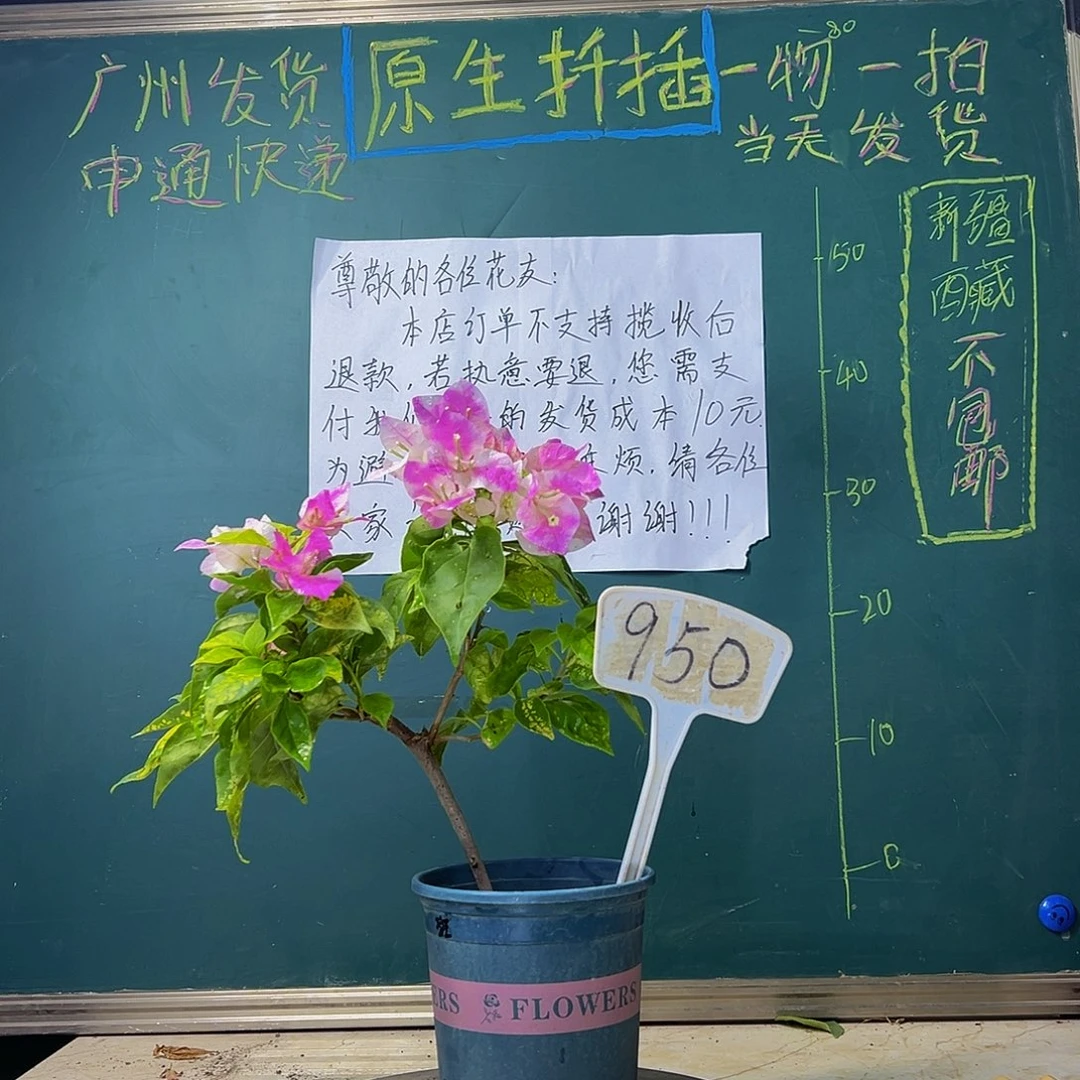 广州发货
申通快递
原生扦插
一物一拍
80
当天发货
新疆
西藏
不包邮
尊敬的各位花友:
本店订单不支持揽收后
退款,若执意要退,您需支
付我 的发货成本10元.
为避 烦.请各位
家 谢谢!!!
50
40
30
20
10
0
950
ERS FLOWERS